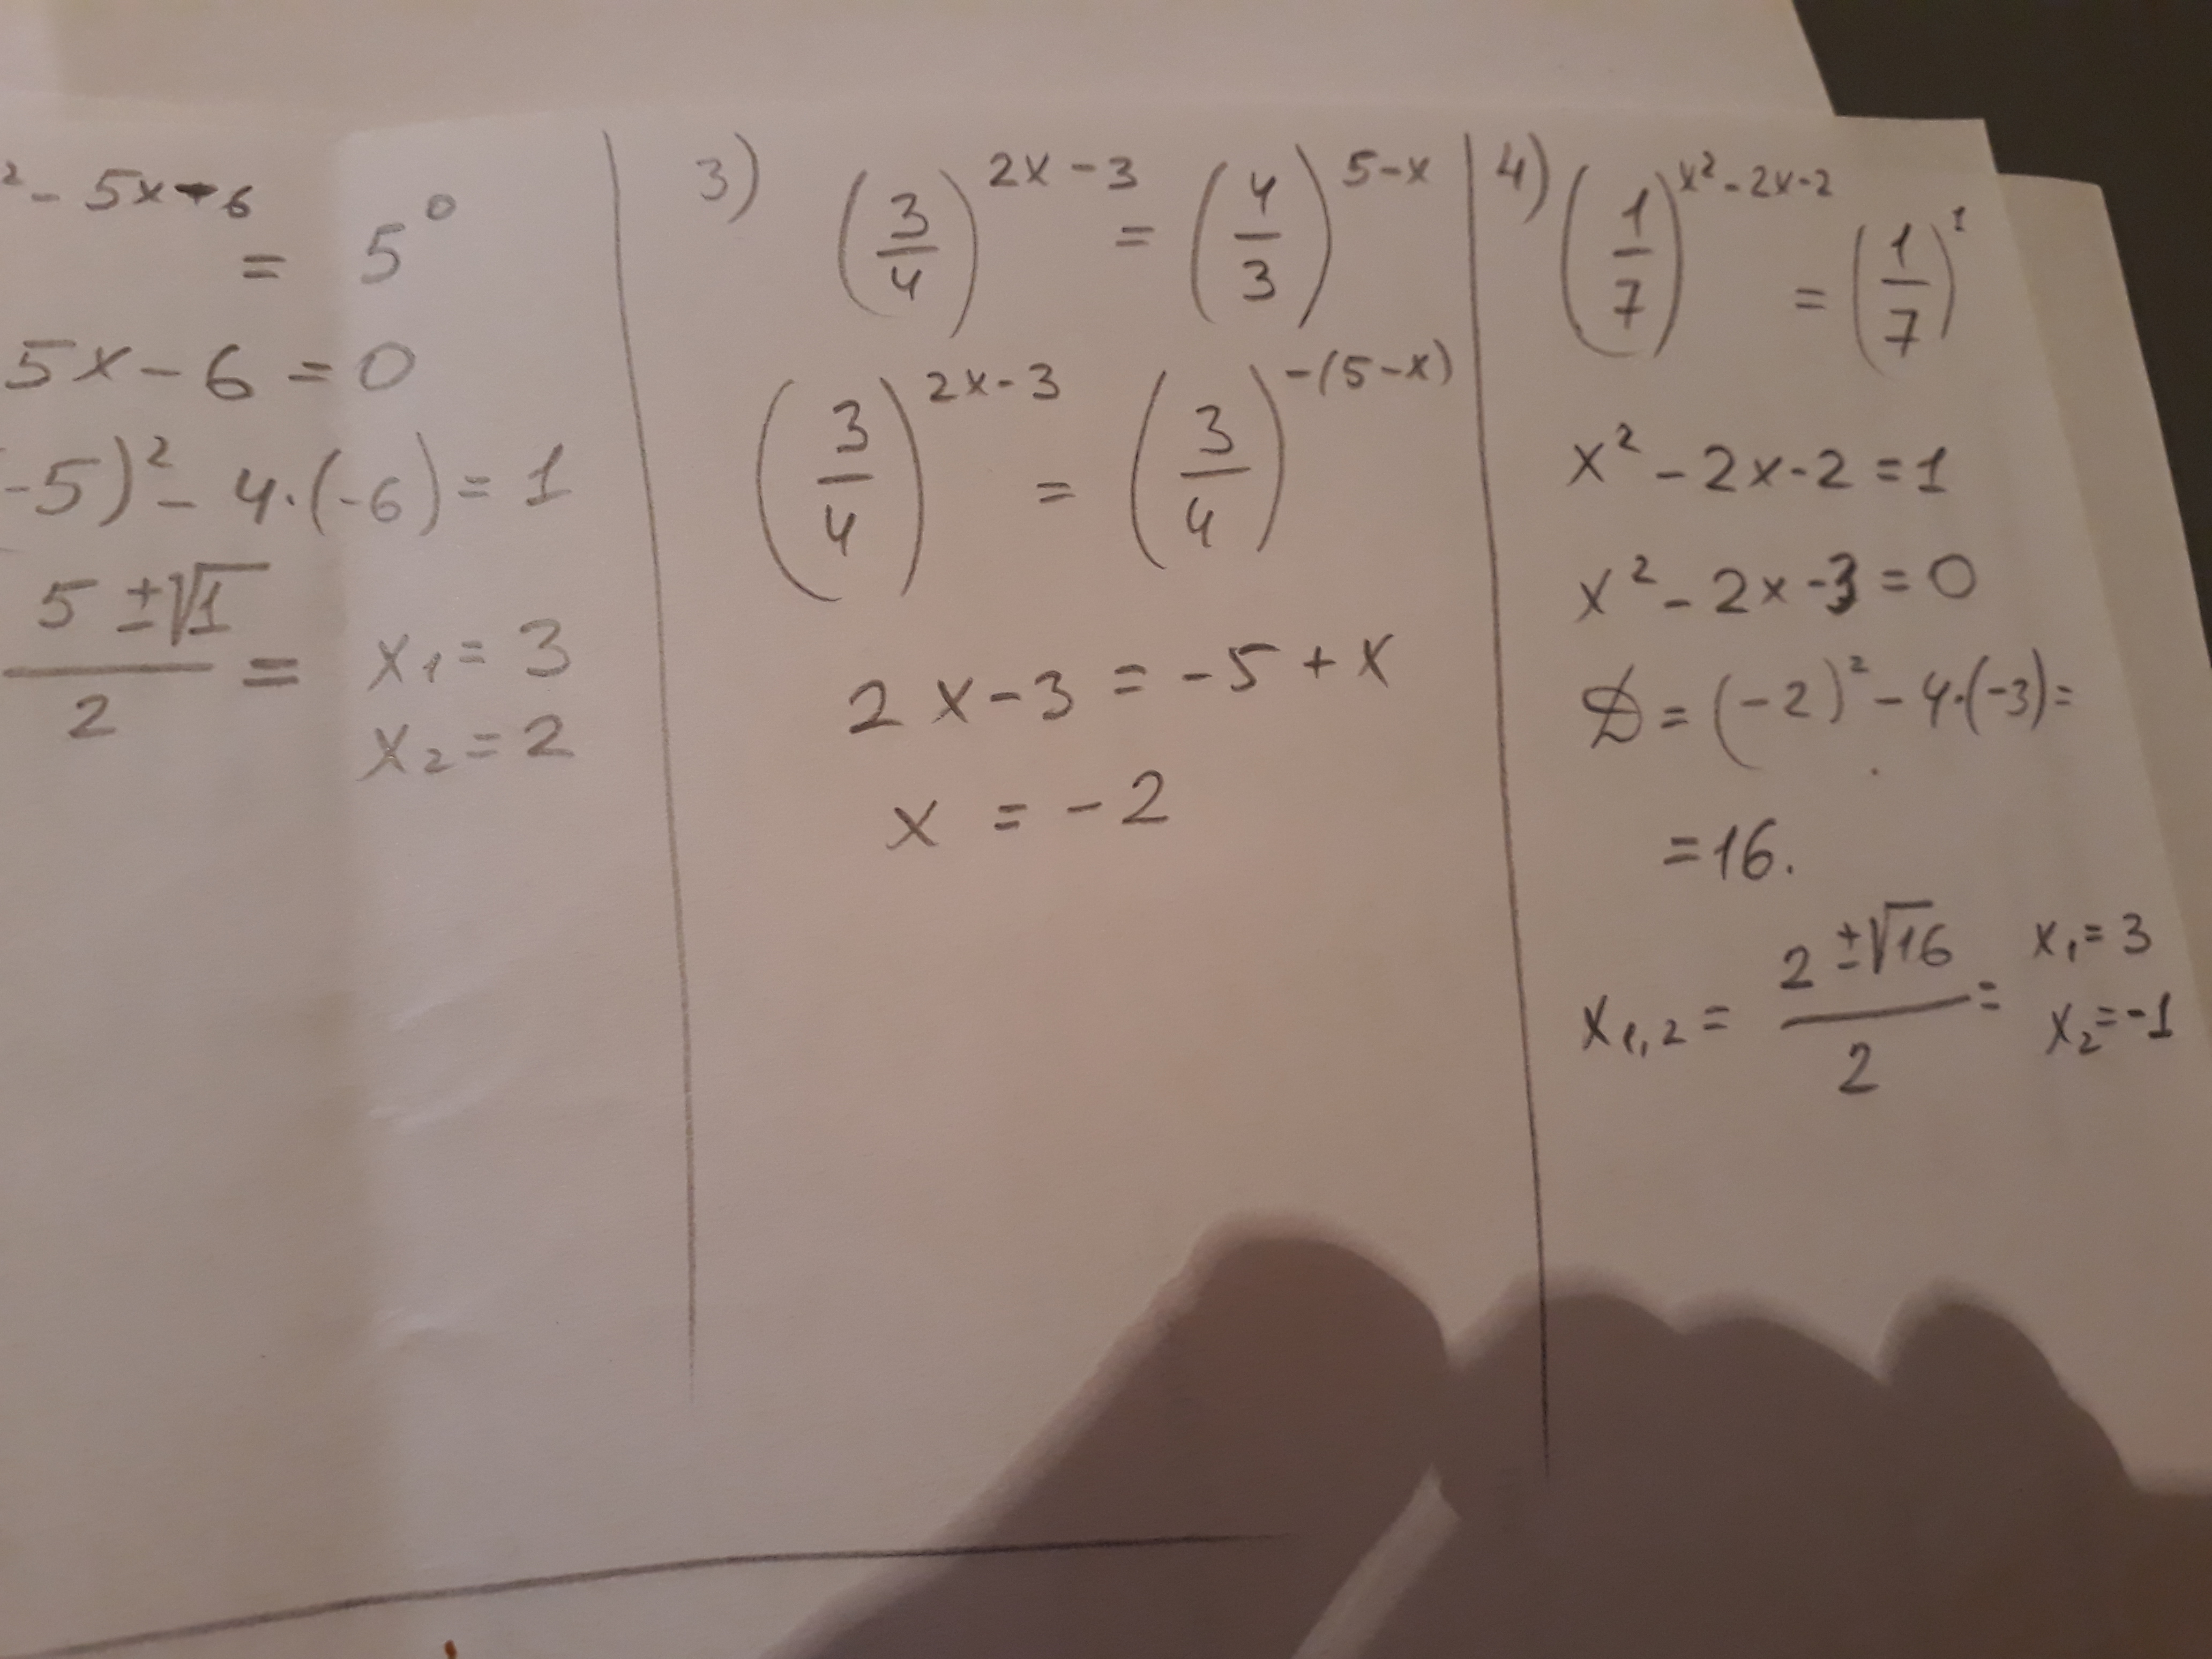 ² - 5x - 6 = 5⁰
5x - 6 = 0
-5)² - 4·(-6) = 1
(5 ± √1)/2 = x₁ = 3
x₂ = 2
3) (3/4)^(2x - 3) = (4/3)^(5 - x)
(3/4)^(2x - 3) = (3/4)^(-(5 - x))
2x - 3 = -5 + x
x = -2
4) (1/7)^(x² - 2x - 2) = (1/7)¹
x² - 2x - 2 = 1
x² - 2x - 3 = 0
D = (-2)² - 4·(-3) =
= 16.
x₁,₂ = (2 ± √16)/2 = x₁ = 3
x₂ = -1